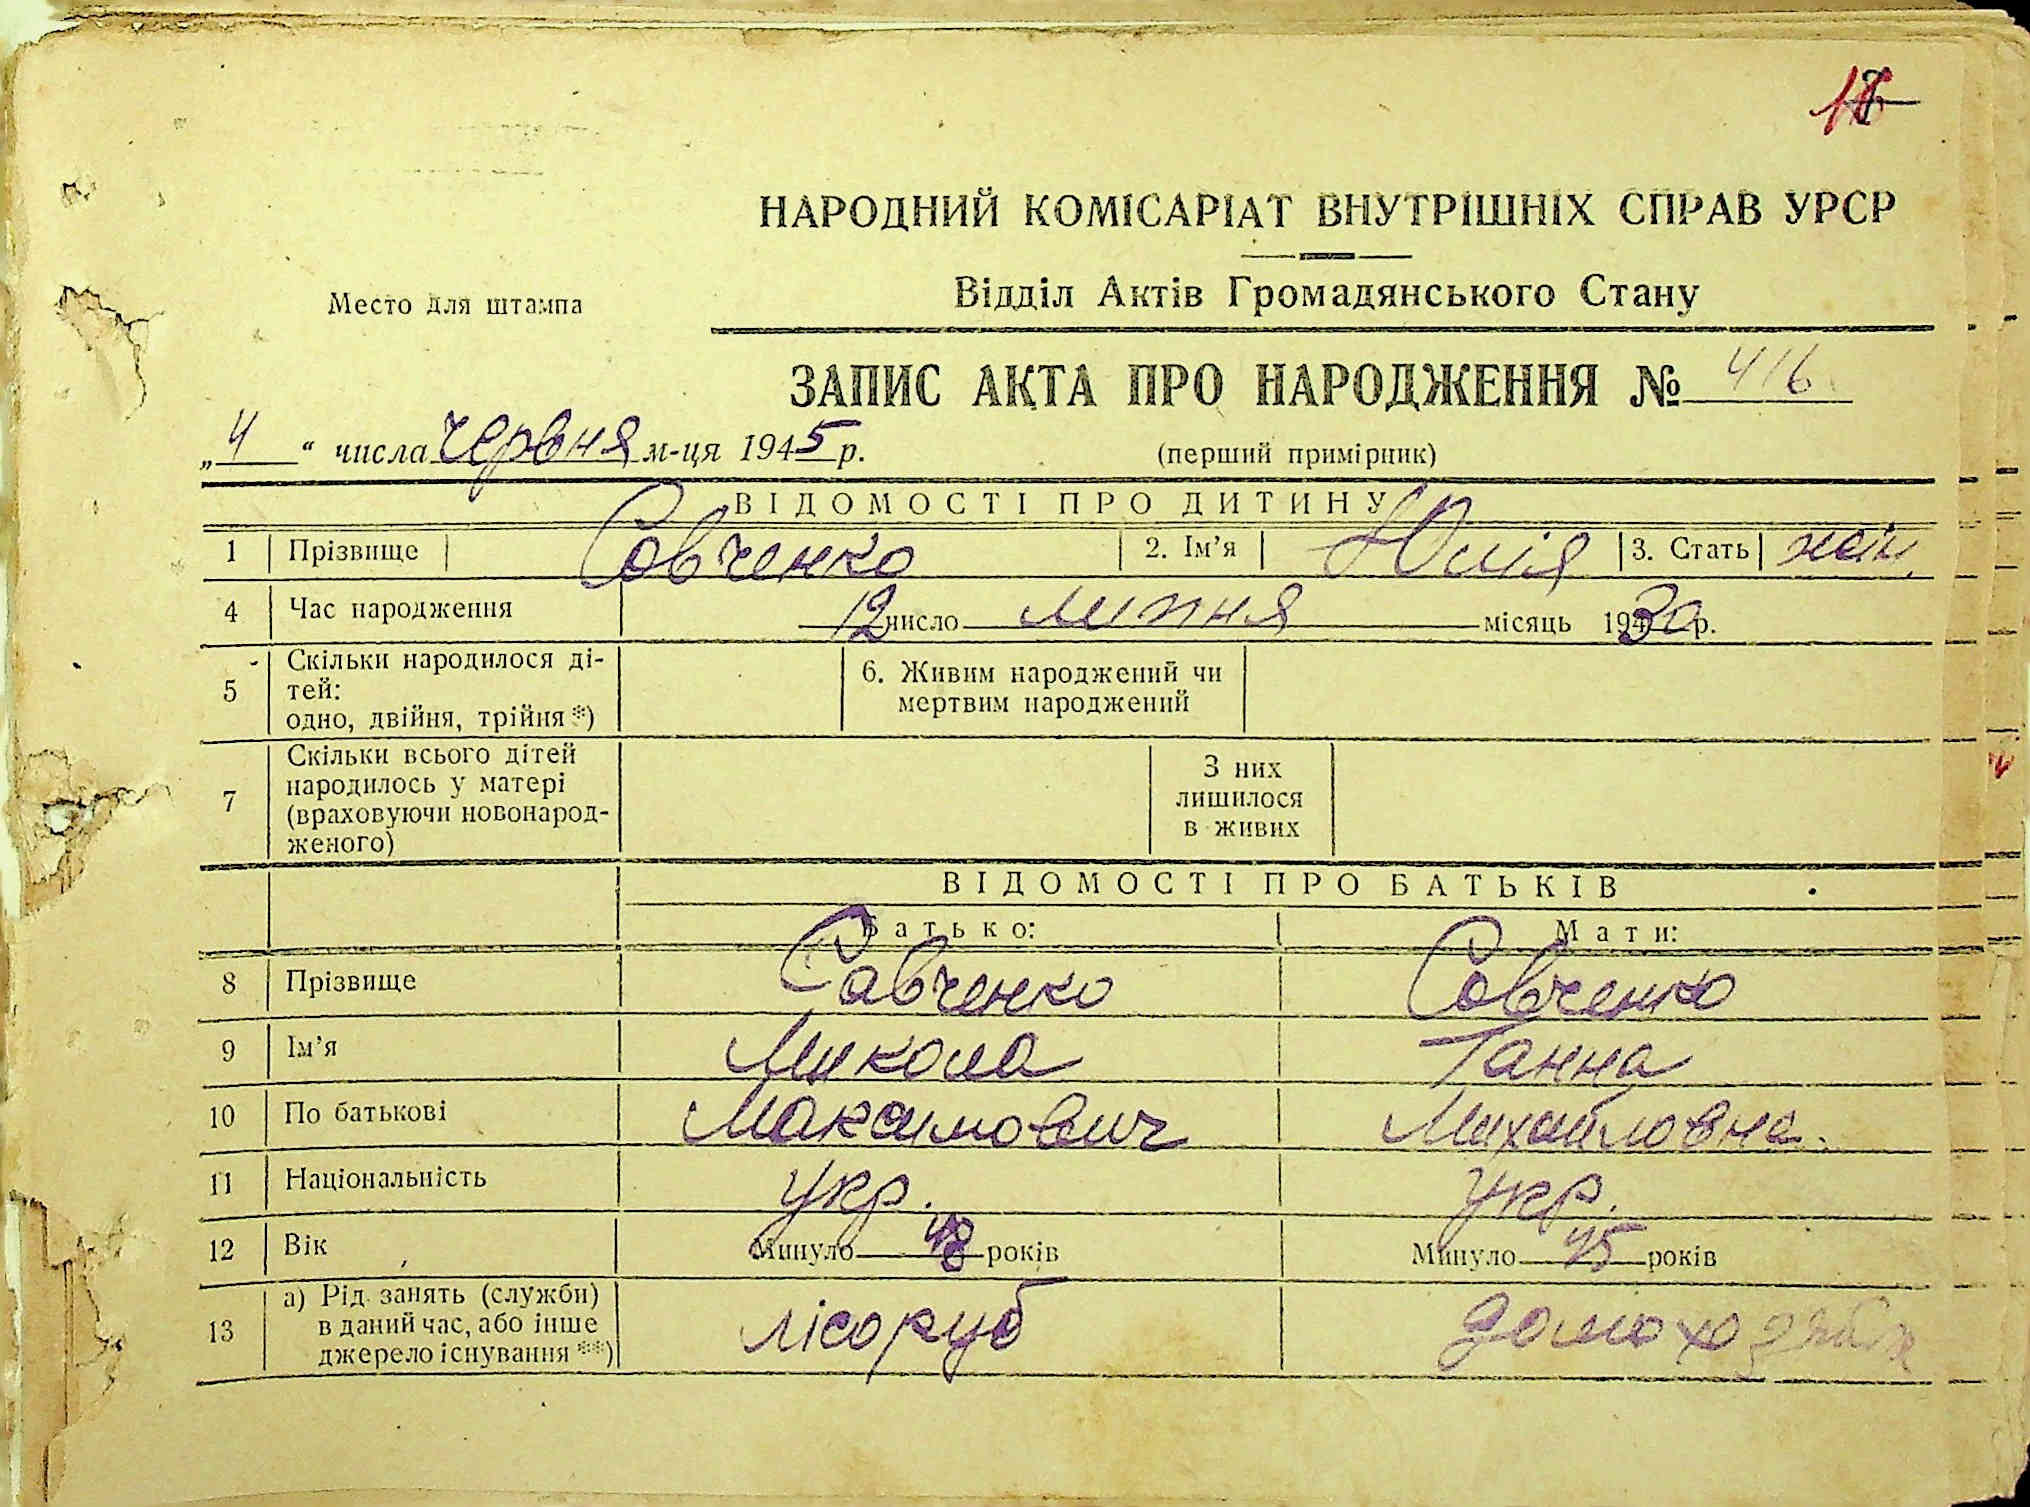 НАРОДНИЙ КОМІСАРІАТ ВНУТРІШНІХ СПРАВ УРСР
Відділ Актів Громадянського Стану
Место для штампа
ЗАПИС АКТА ПРО НАРОДЖЕННЯ № 416
„4“ числа червня м-ця 1945 р. (перший примірник)
ВІДОМОСТІ ПРО ДИТИНУ
1 Прізвище Савченко 2. Ім’я Юлія 3. Стать жін.
4 Час народження 12 число липня місяць 1930 р.
5 Скільки народилося ді-
тей:
одно, двійня, трійня *)
6. Живим народжений чи
мертвим народжений
7 Скільки всього дітей
народилось у матері
(враховуючи новонарод-
женого)
З них
лишилося
в живих
ВІДОМОСТІ ПРО БАТЬКІВ
Батько: Мати:
8 Прізвище Савченко Савченко
9 Ім’я Микола Ганна
10 По батькові Максимович Михайловна.
11 Національність укр. укр.
12 Вік Минуло 48 років Минуло 45 років
13 а) Рід занять (служби)
в даний час, або інше
джерело існування **)
лісоруб домохозяйка